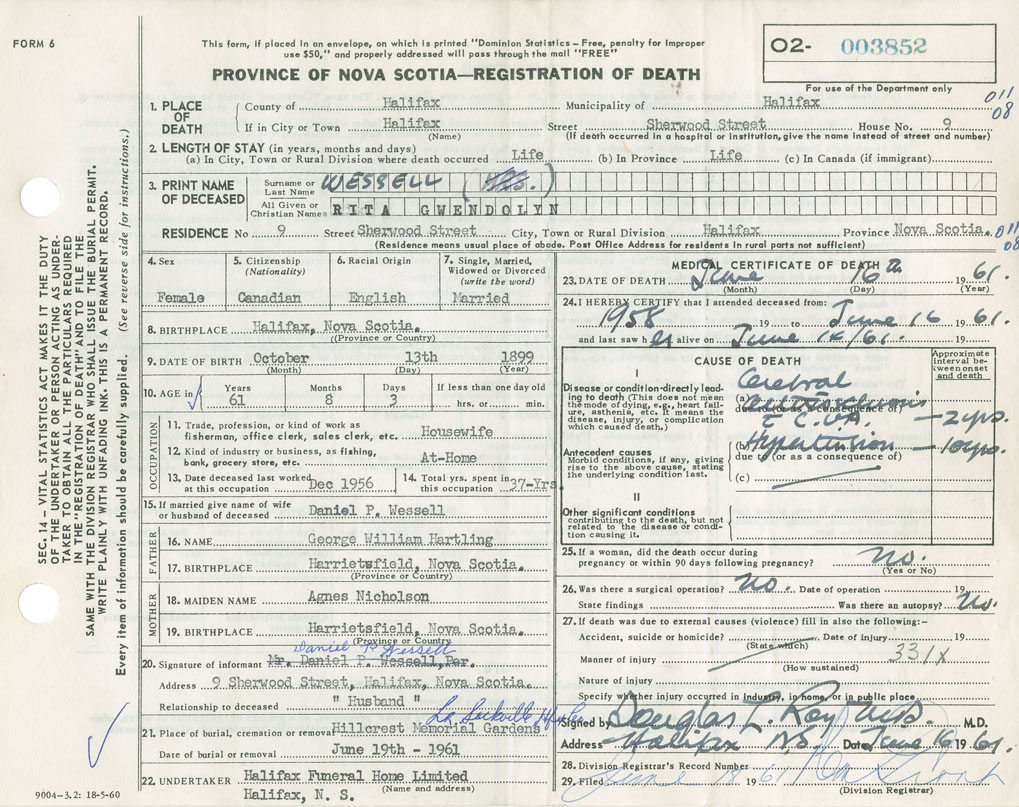 FORM 6
This form, if placed in an envelope, on which is printed "Dominion Statistics – Free, penalty for improper
use $50," and properly addressed will pass through the mail "FREE"
O2- 003852
For use of the Department only
PROVINCE OF NOVA SCOTIA—REGISTRATION OF DEATH
011
08
1. PLACE OF DEATH
County of Halifax Municipality of Halifax
If in City or Town Halifax Street Sherwood Street House No. 9
(Name) (If death occurred in a hospital or institution, give the name instead of street and number)
2. LENGTH OF STAY (in years, months and days)
(a) In City, Town or Rural Division where death occurred Life (b) In Province Life (c) In Canada (if immigrant)
3. PRINT NAME OF DECEASED
Surname or Last Name WESSELL
All Given or Christian Names RITA GWENDOLYN
RESIDENCE No 9 Street Sherwood Street City, Town or Rural Division Halifax Province Nova Scotia. 011
08
(Residence means usual place of abode. Post Office Address for residents in rural parts not sufficient)
4. Sex
Female
5. Citizenship
(Nationality)
Canadian
6. Racial Origin
English
7. Single, Married,
Widowed or Divorced
(write the word)
Married
8. BIRTHPLACE Halifax, Nova Scotia.
((Province or Country)
9. DATE OF BIRTH October 13th 1899
(Month) (Day) (Year)
10. AGE in
Years Months Days If less than one day old
61 8 3 hrs. or min.
OCCUPATION
11. Trade, profession, or kind of work as
fisherman, office clerk, sales clerk, etc. Housewife
12. Kind of industry or business, as fishing,
bank, grocery store, etc. At-Home
13. Date deceased last worked
at this occupation Dec 1956
14. Total yrs. spent in
this occupation 37-Yrs.
15. If married give name of wife
or husband of deceased Daniel P. Wessell
FATHER
16. NAME George William Hartling
17. BIRTHPLACE Harrietsfield, Nova Scotia.
(Province or Country)
MOTHER
18. MAIDEN NAME Agnes Nicholson
19. BIRTHPLACE Harrietsfield, Nova Scotia.
(Province or Country
Daniel P Wessell
20. Signature of informant Mr. Daniel P. Wessell, Per.
Address 9 Sherwood Street, Halifax, Nova Scotia.
Relationship to deceased " Husband "
21. Place of burial, cremation or removal Hillcrest Memorial Gardens
Date of burial or removal June 19th - 1961
22. UNDERTAKER Halifax Funeral Home Limited
(Name and address)
Halifax, N. S.
9004-3.2: 18-5-60
MEDICAL CERTIFICATE OF DEATH
23. DATE OF DEATH June 16th 1961
(Month) (Day) (Year)
24. I HEREBY CERTIFY that I attended deceased from:
1958 19 to June 16 1961.
and last saw her alive on June 16/61. 19
CAUSE OF DEATH
Approximate interval between onset and death
I
Disease or condition directly leading to death (This does not mean the mode of dying, e.g., heart failure, asthenia, etc. It means the disease, injury, or complication which caused death.)
(a) Cerebral
due to (or as a consequence of)
C.V.A. — 2 yrs.
(b) Hypertension — 10 yrs.
due to (or as a consequence of)
(c)
Antecedent causes
Morbid conditions, if any, giving rise to the above cause, stating the underlying condition last.
II
Other significant conditions
contributing to the death, but not related to the disease or condition causing it.
25. If a woman, did the death occur during
pregnancy or within 90 days following pregnancy? no.
(Yes or No)
26. Was there a surgical operation? no. Date of operation 19
State findings Was there an autopsy? no.
27. If death was due to external causes (violence) fill in also the following:-
Accident, suicide or homicide? Date of injury 19
(State which)
Manner of injury 331X
(How sustained)
Nature of injury
Specify whether injury occurred in Industry, in home, or in public place
Signed by Douglas L. Roy M.D. M.D.
Address Halifax N.S. Date June 16 1961.
28. Division Registrar's Record Number
29. Filed June 18 61
(Division Registrar)
SEC. 14 – VITAL STATISTICS ACT MAKES IT THE DUTY
OF THE UNDERTAKER OR PERSON ACTING AS UNDER-
TAKER TO OBTAIN ALL THE PARTICULARS REQUIRED
IN THE "REGISTRATION OF DEATH" AND TO FILE THE
SAME WITH THE DIVISION REGISTRAR WHO SHALL ISSUE THE BURIAL PERMIT.
WRITE PLAINLY WITH UNFADING INK. THIS IS A PERMANENT RECORD.
Every item of information should be carefully supplied. (See reverse side for instructions.)